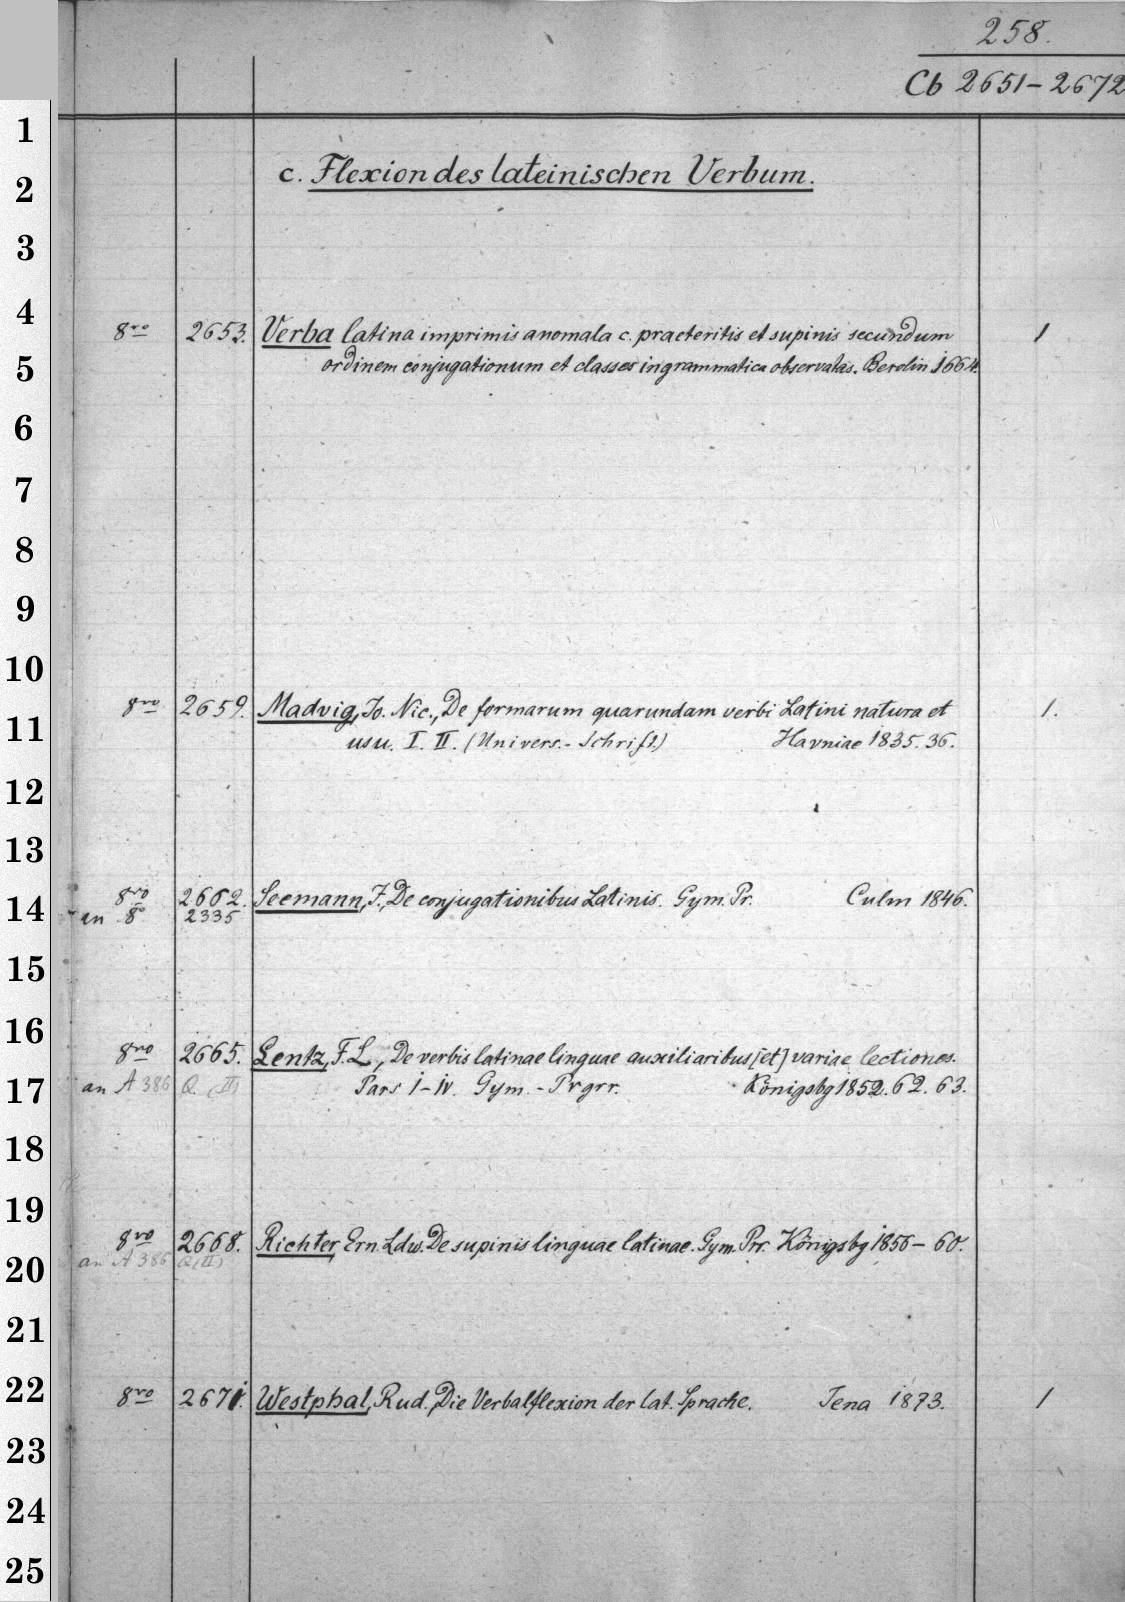 258.
Cb 2651-2672
1
2
3
4
5
6
7
8
9
10
11
12
13
14
15
16
17
18
19
20
21
22
23
24
25
c. Flexion des lateinischen Verbum.
8ro 2653. Verba latina imprimis anomala c. praeteritis et supinis secundum 1
ordinem conjugationum et classes in grammatica observatas. Berolin 1664.
8ro 2659. Madvig, Jo. Nic., De formarum quarundam verbi Latini natura et 1.
usu. I. II. (Univers.- Schrift.) Havniae 1835. 36.
8ro 2662. Seemann, F., De conjugationibus Latinis. Gym. Pr. Culm 1846.
an 8o 2335
8ro 2665. Lentz, F. L., De verbis latinae linguae auxiliaribus [et] variae lectiones.
an A 386 Q (II) Pars I-IV. Gym. - Prgrr. Königsbg 1852. 62. 63.
8ro 2668. Richter, Ern. Ldw. De supinis linguae latinae. Gym. Prr. Königsbg 1856- 60.
an A 386 Q (II)
8ro 2671. Westphal, Rud., Die Verbalflexion der lat. Sprache. Jena 1873. 1